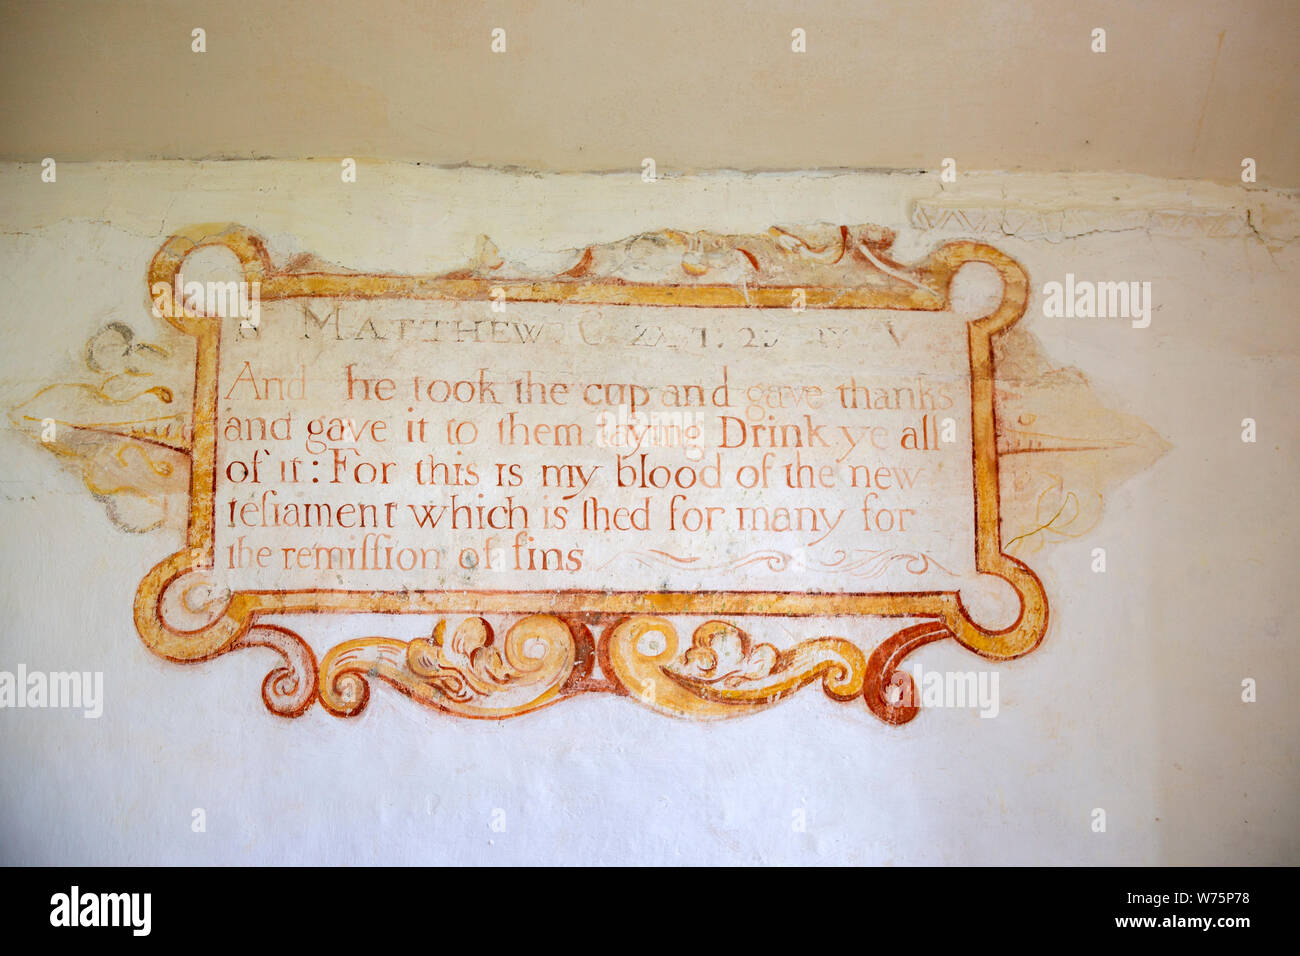 S MATTHEW C XXVI. 27 V
And he took the cup and gave thanks
and gave it to them, ſaying Drink ye all
of it: For this is my blood of the new
teſtament which is ſhed for many for
the remiſſion of ſins
alamy
Image ID: W75P78
www.alamy.com